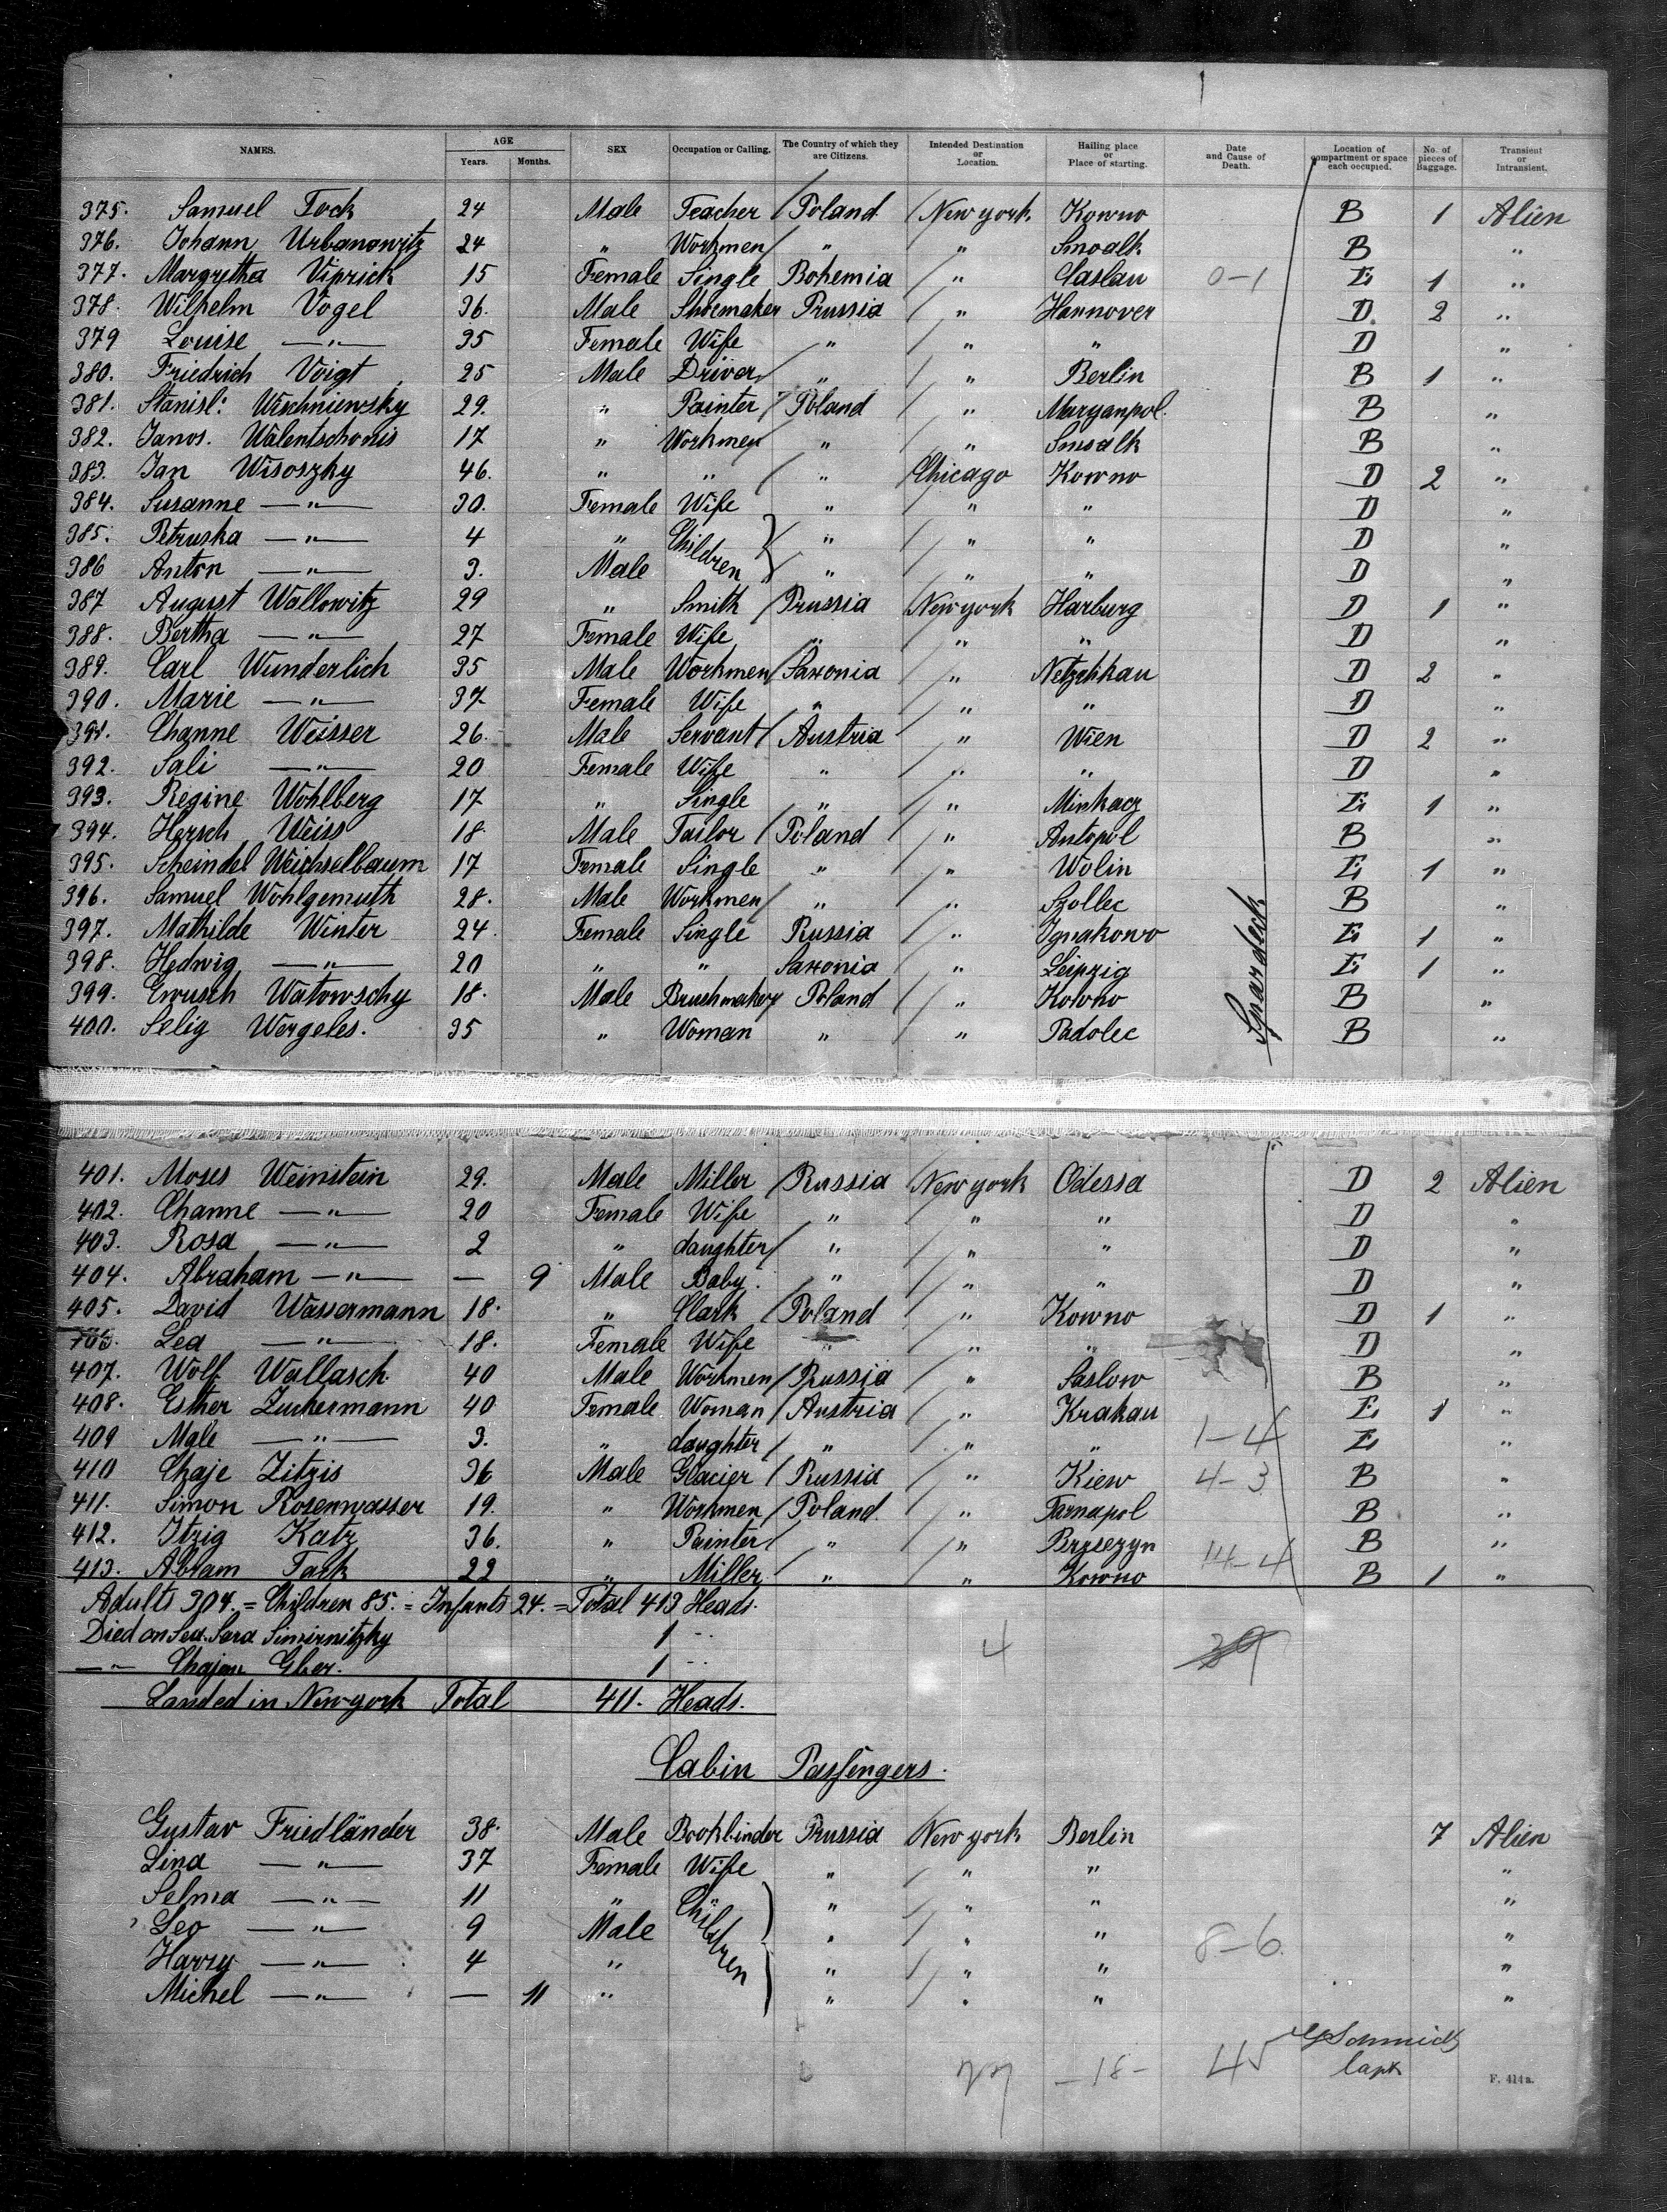 NAMES. AGE Years. Months. SEX Occupation or Calling. The Country of which they are Citizens. Intended Destination or Location. Hailing place or Place of starting. Date and Cause of Death. Location of compartment or space each occupied. No. of pieces of Baggage. Transient or Intransient.
375. Samuel Tock 24 Male Teacher Poland New york Kowno B 1 Alien
376. Johann Urbanowitz 24 " Workmen " " Smoalk B "
377. Margretha Viprick 15 Female Single Bohemia " Caslau 0-1 E 1 "
378. Wilhelm Vogel 36. Male Shoemaker Prussia " Hannover D. 2 "
379 Louise —"— 35 Female Wife " " " D "
380. Friedrich Voigt 25 Male Driver " " Berlin B 1 "
381. Stanisl: Wischniewsky 29. " Painter Poland " Maryanpol. B "
382. Janos. Walentschonis 17 " Workmen " " Smoalk B "
383. Jan Wisoszky 46. " " " Chicago Kowno D 2 "
384. Susanne —"— 30. Female Wife " " " D "
385. Petruska —"— 4 " Children " " " D "
386 Anton —"— 3. Male " " " D "
387 August Wallowitz 29 " Smith Prussia New york Harburg D 1 "
388. Bertha —"— 27 Female Wife " " " D "
389. Carl Wunderlich 35 Male Workmen Saxonia " Netzchkau D 2 "
390. Marie —"— 37 Female Wife " " " D "
391. Channe Weisser 26. Male Servant Austria " Wien D 2 "
392. Sali —"— 20 Female Wife " " " D "
393. Regine Wohlberg 17 " Single " " Minkacz E 1 "
394. Hersch Weiss 18. Male Tailor Poland " Antopol B "
395. Scheindel Weichselbaum 17 Female Single " " Wolin E 1 "
396. Samuel Wohlgemuth 28. Male Workmen " " Szollec B "
397. Mathilde Winter 24. Female Single Russia " Ignakowo E 1 "
398. Hedwig —"— 20 " " Saxonia " Leipzig E 1 "
399. Ewusch Watowschy 18. Male Brushmaker Poland " Kolono B "
400. Selig Wergeles. 35 " Woman " " Padolec B "
Spardeck
401. Moses Weinstein 29. Male Miller Russia New york Odessa D 2 Alien
402. Channe —"— 20 Female Wife " " " D "
403. Rosa —"— 2 " daughter " " " D "
404. Abraham —"— — 9 Male Baby. " " " D "
405. David Wassermann 18. " Clark Poland " Kowno D 1 "
406. Lea —"— 18. Female Wife " " " D "
407. Wolf Wallasch 40 Male Workmen Russia " Saslow B "
408. Esther Zuckermann 40 Female Woman Austria " Krakau E 1 "
409 Male —"— 3. " daughter " " " 1-4 E "
410 Chaje Zitzis 36 Male Glacier Russia " Kiew 4-3 B "
411. Simon Rosenwasser 19. " Workmen Poland " Tarnapol B "
412. Itzig Katz 36. " Painter " " Brzsezyn B "
413. Abram Tark 22 " Miller. " " Kowno 14-4 B 1 "
Adults 304. = Children 85. = Infants 24. = Total 413 Heads.
Died on Sea. Sara Simirnitzky 1 " 4 39
—"— Chajau Gber. 1 "
Landed in New-york Total 411. Heads.
Cabin Passengers.
Gustav Friedländer 38. Male Bookbinder Prussia New york Berlin 7 Alien
Lina —"— 37 Female Wife " " " "
Selma —"— 11 " Children " " " "
Leo —"— 9 Male " " " "
Harry —"— 4 " " " " 8-6 "
Michel —"— — 11 " " " " "
-18- 45 Schmidt
Capt
F. 414a.